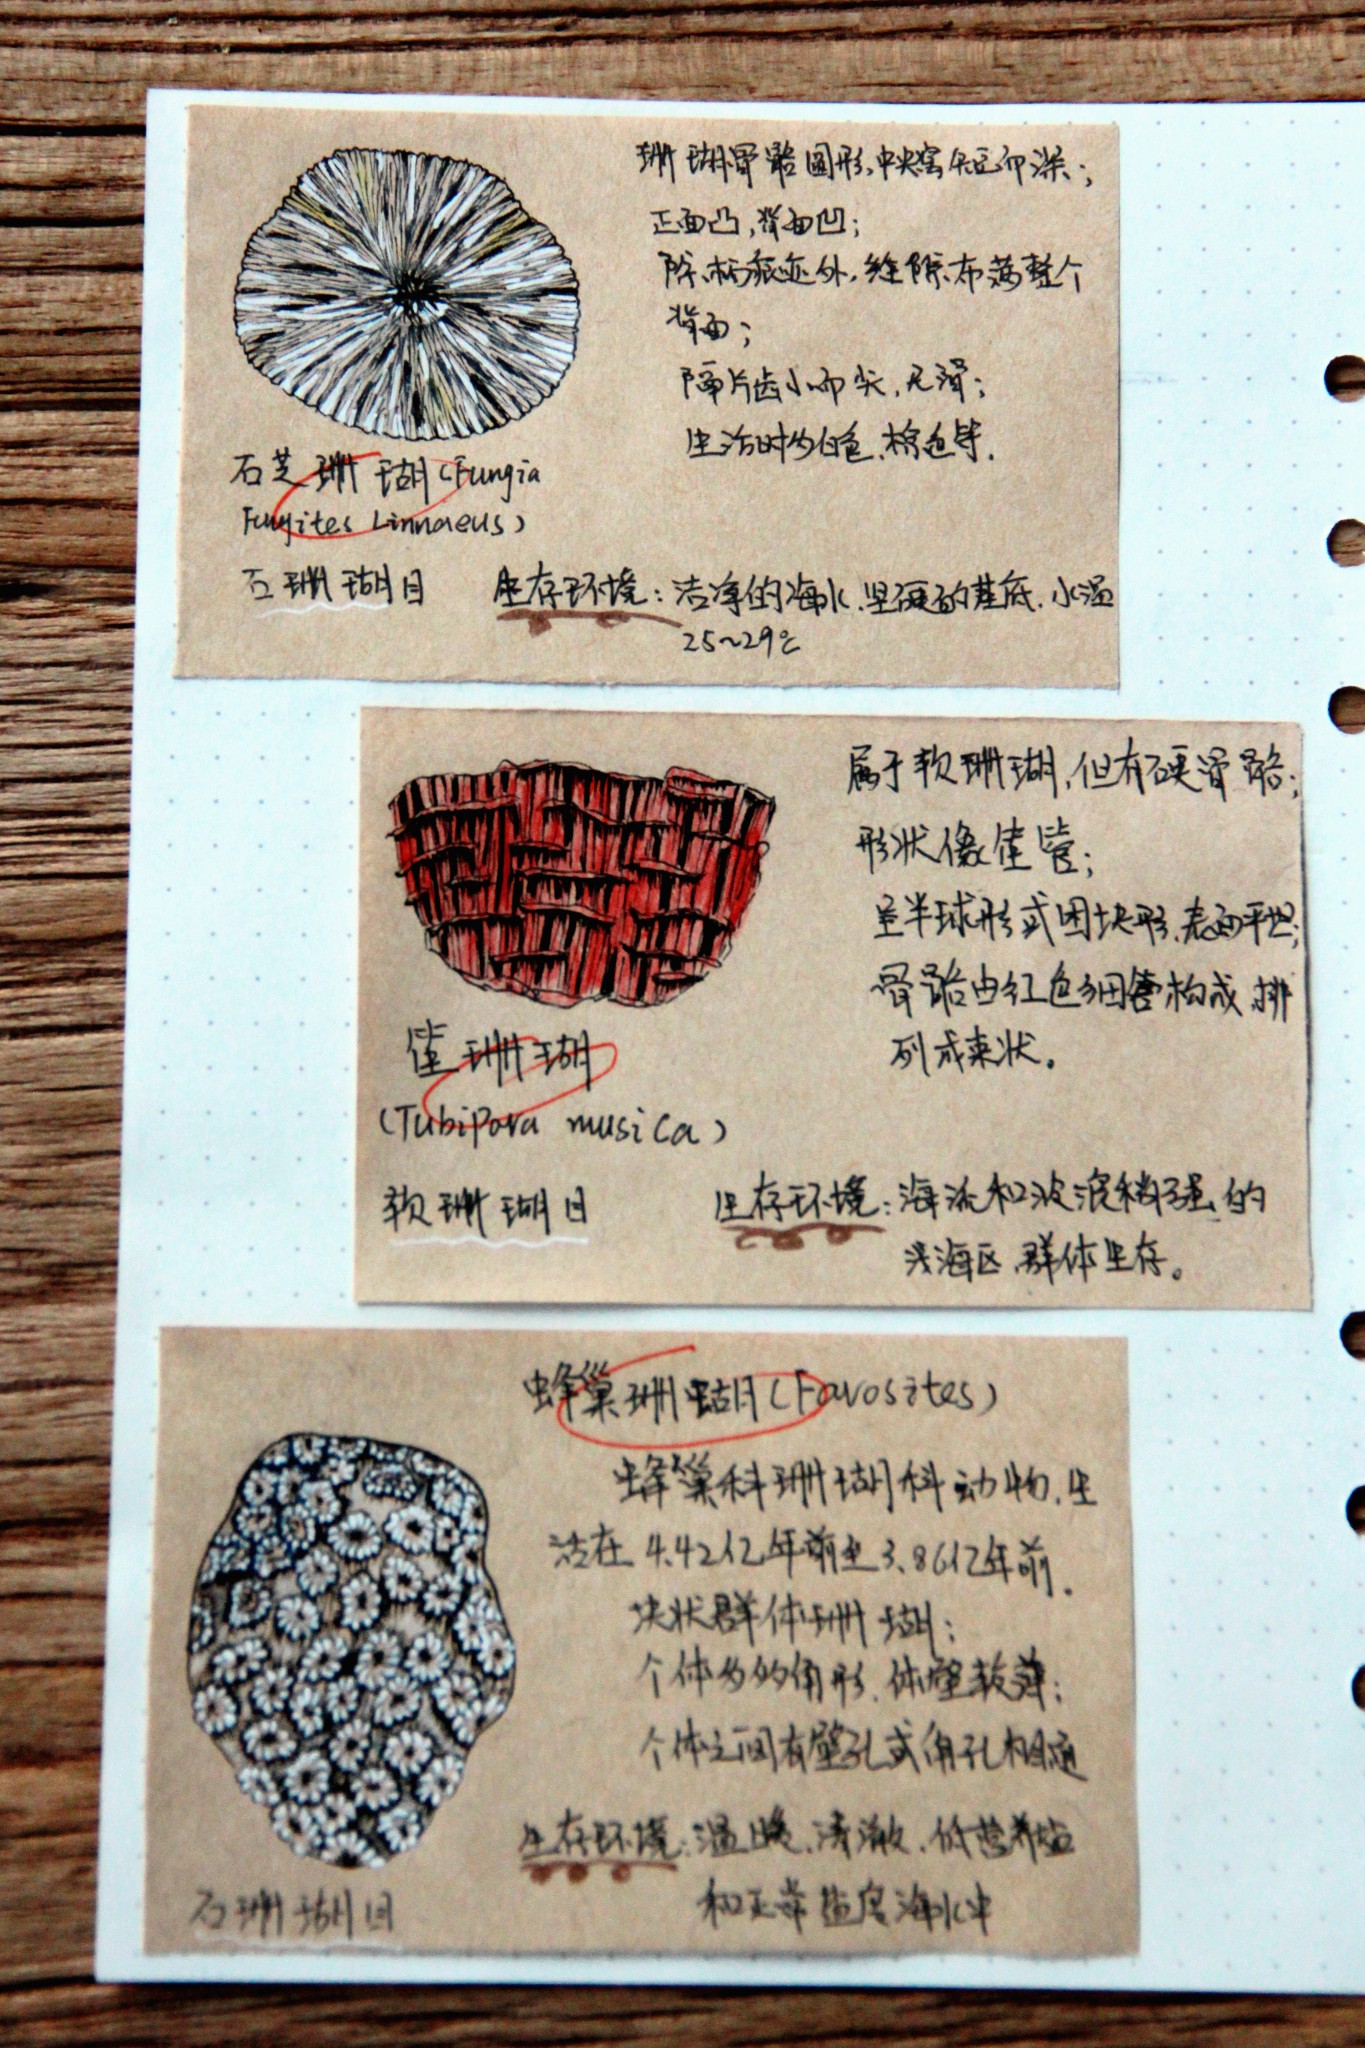 珊瑚骨骼圆形,中央窝短而深;
正面凸,背面凹;
除柄痕迹外,缝隙布满整个
背面;
隔片齿小而尖,光滑;
生活时为白色、棕色等.
石芝珊瑚(Fungia
Fungites Linnaeus)
石珊瑚目
生存环境:洁净的海水、坚硬的基底、水温
25~29℃
属于软珊瑚,但有硬骨骼;
形状像笙管;
呈半球形或团块形,表面平坦;
骨骼由红色细管构成,排
列成束状。
笙珊瑚
(Tubipora musica)
软珊瑚目
生存环境:海流和波浪稍强的
浅海区,群体生存。
蜂巢珊瑚(Favosites)
蜂巢科珊瑚科动物,生
活在4.42亿年前至3.86亿年前.
块状群体珊瑚;
个体为角形,体壁较薄;
个体之间有壁孔或角孔相通
生存环境:温暖、清澈、低营养盐
和正常盐度海水中
石珊瑚目